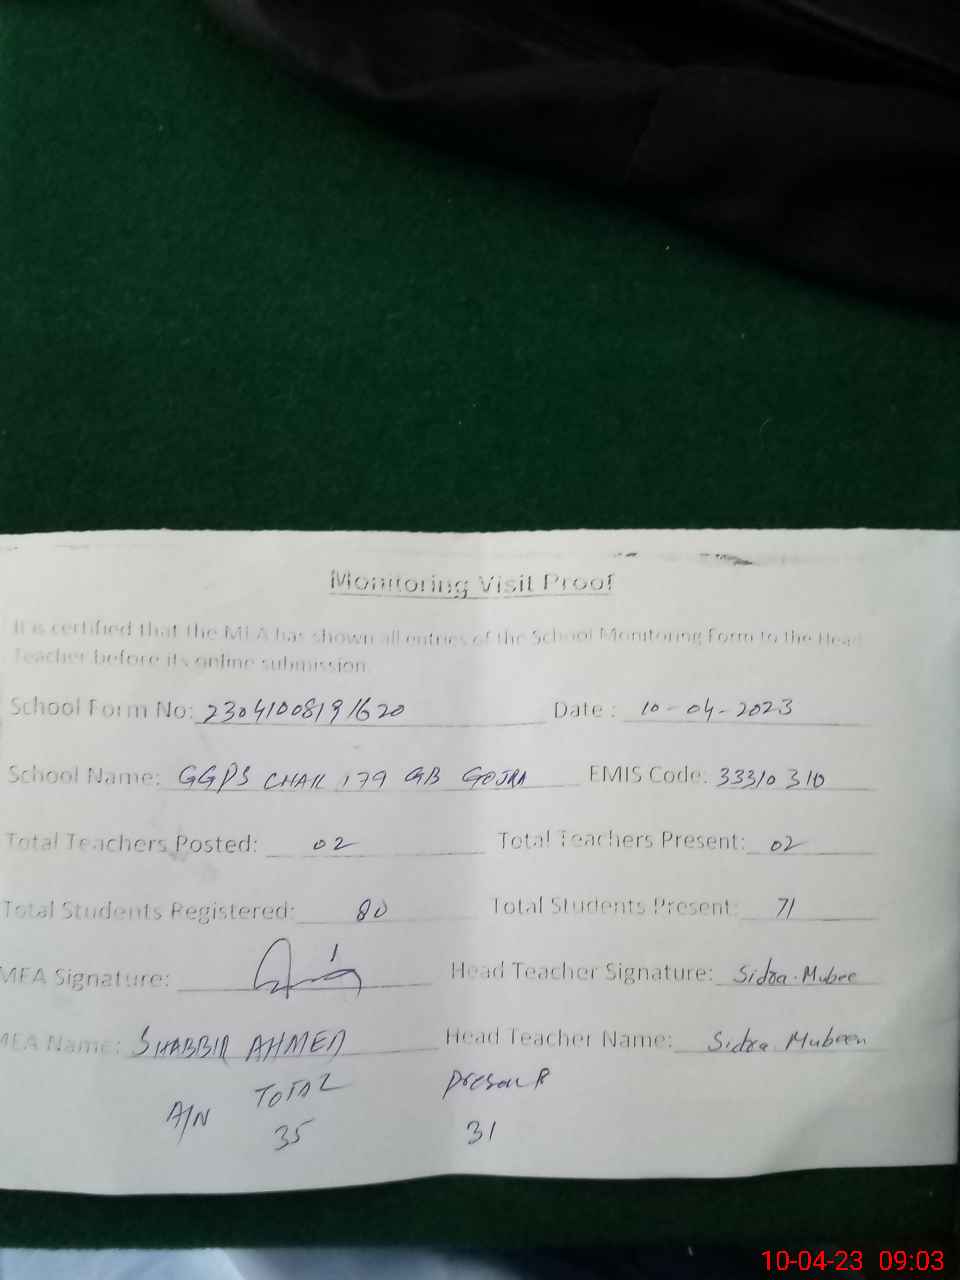 Monitoring Visit Proof
It is certified that the MEA has shown all entries of the School Monitoring Form to the Head
Teacher before its online submission.
School Form No: 23041008191620 Date : 10-04-2023
School Name: GGPS CHAK 179 GB GOJRA EMIS Code: 33310310
Total Teachers Posted: 02 Total Teachers Present: 02
Total Students Registered: 80 Total Students Present: 71
MEA Signature: Head Teacher Signature: Sidra Mubee
MEA Name: SHABBIR AHMED Head Teacher Name: Sidra Mubeen
TOTAL Present
A/N 35 31
10-04-23 09:03